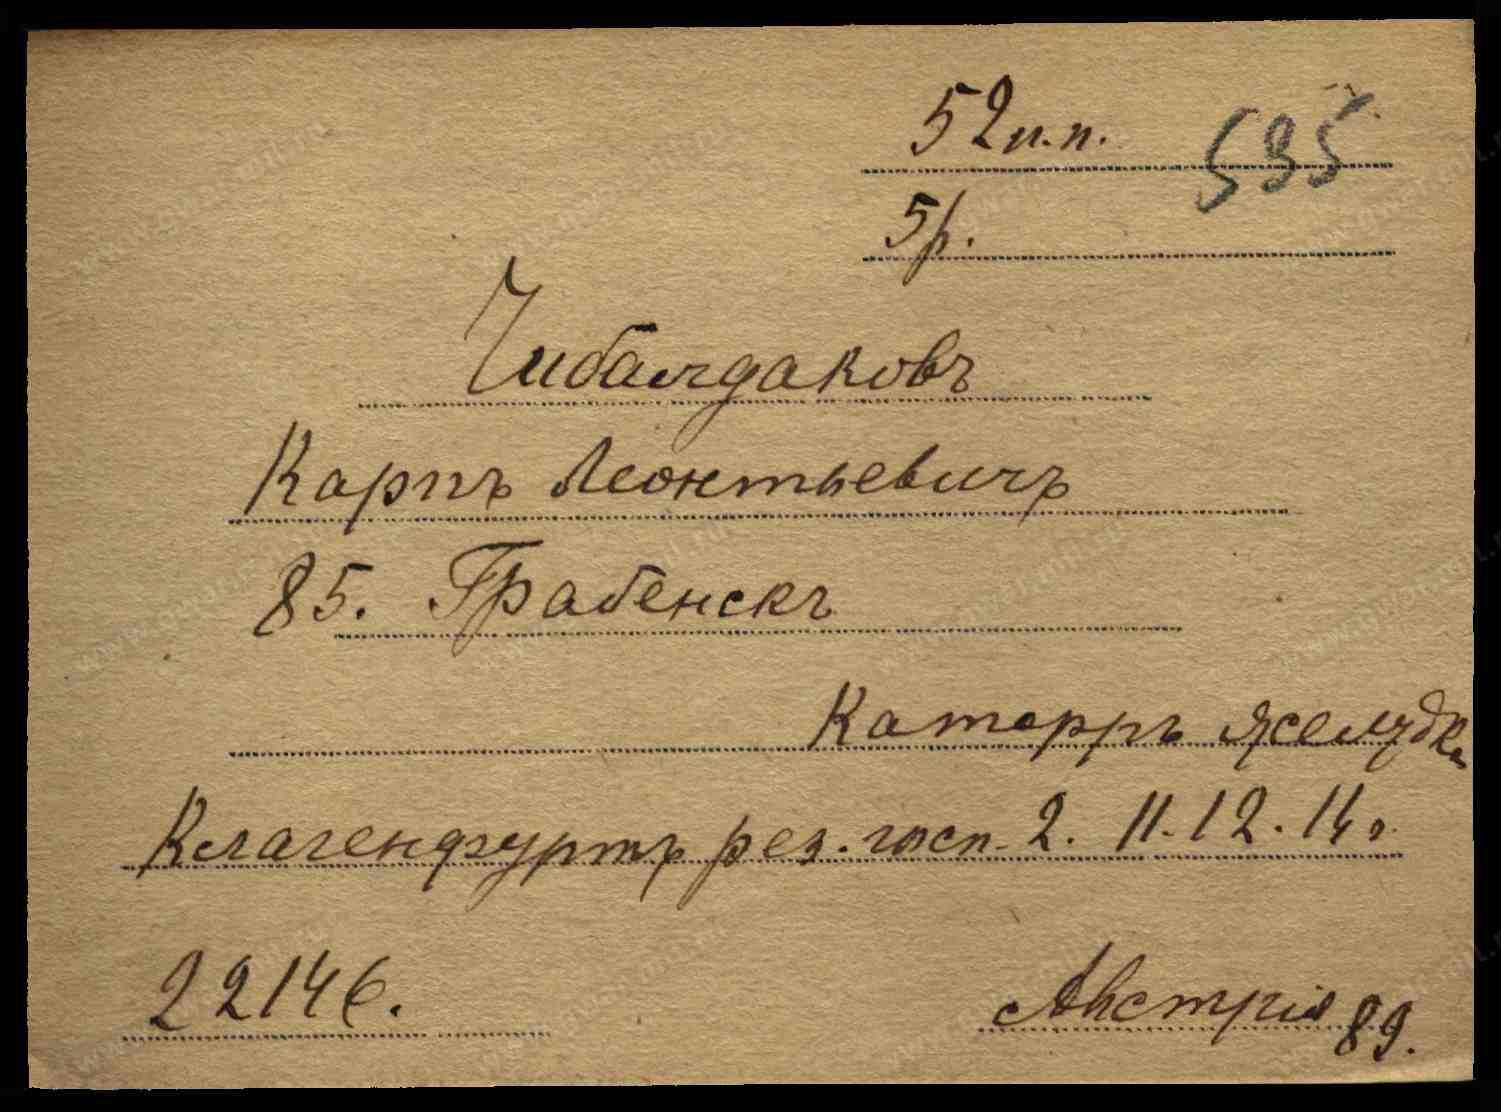 52 п.п. 535
5 р.
Чибалдаковъ
Карпъ Леонтьевичъ
85. Грабенскъ
Катарръ желудка
Клагенфуртъ рез. госп. 2. 11.12.14 г.
22146.
Австрія 89.